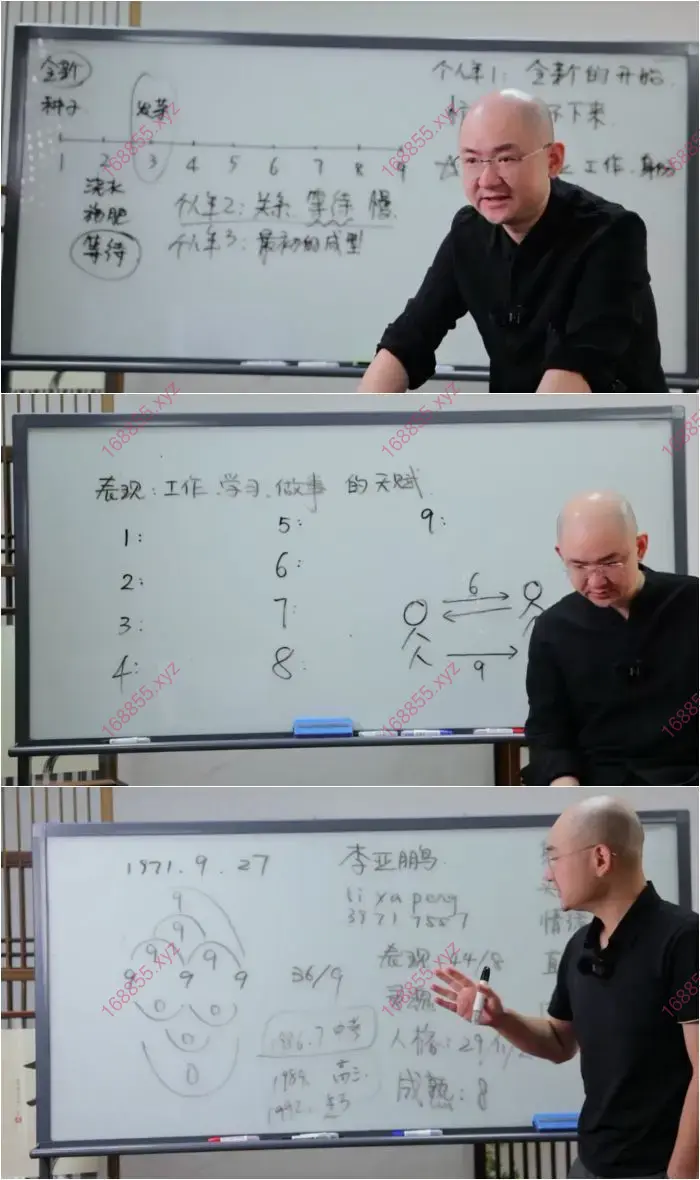 全新
个人年1: 全新的开始
种子
发芽
不下来
工作.身份
1 2 3 4 5 6 7 8 9
浇水
施肥
等待
个人年2: 关系. 等待 慢.
个人年3: 最初的成型
168855.xyz
168855.xyz
168855.xyz
168855.xyz
表现: 工作.学习.做事 的天赋.
1:
2:
3:
4:
5:
6:
7:
8:
9:
6
9
168855.xyz
168855.xyz
1971.9.27
李亚鹏
li ya peng
36/9
表现: 44/8
9
9
9 9
9 9 9
0 0
0
0
1986.7 中考
1989. 高三
人格: 29
成熟: 8
情绪
168855.xyz
168855.xyz